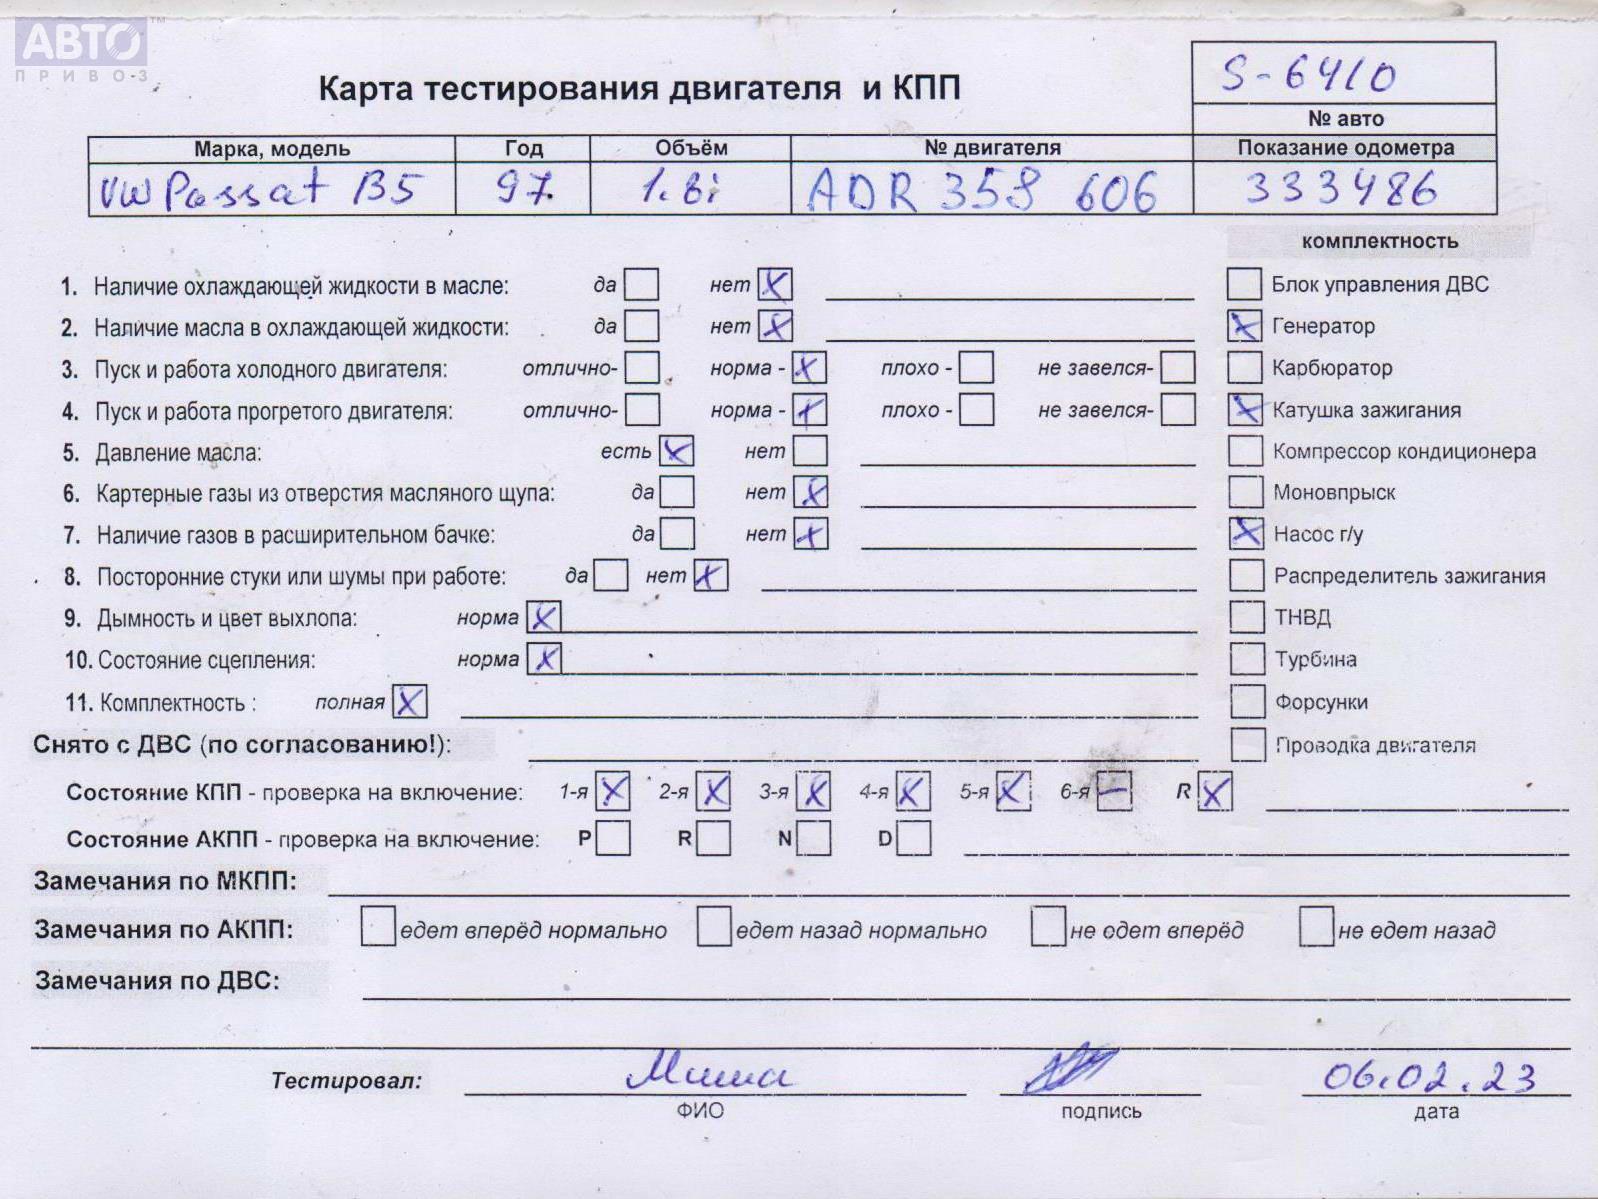 АВТО
ПРИВОЗ
S-6410
Карта тестирования двигателя и КПП
№ авто
Марка, модель Год Объём № двигателя Показание одометра
VW Passat B5 97. 1.8i ADR 358 606 333486
комплектность
1. Наличие охлаждающей жидкости в масле: да нет X Блок управления ДВС
2. Наличие масла в охлаждающей жидкости: да нет X X Генератор
3. Пуск и работа холодного двигателя: отлично- норма - X плохо - не завелся- Карбюратор
4. Пуск и работа прогретого двигателя: отлично- норма - X плохо - не завелся- X Катушка зажигания
5. Давление масла: есть X нет Компрессор кондиционера
6. Картерные газы из отверстия масляного щупа: да нет X Моновпрыск
7. Наличие газов в расширительном бачке: да нет X X Насос г/у
8. Посторонние стуки или шумы при работе: да нет X Распределитель зажигания
9. Дымность и цвет выхлопа: норма X ТНВД
10. Состояние сцепления: норма X Турбина
11. Комплектность : полная X Форсунки
Снято с ДВС (по согласованию!): Проводка двигателя
Состояние КПП - проверка на включение: 1-я X 2-я X 3-я X 4-я X 5-я X 6-я — R X
Состояние АКПП - проверка на включение: P R N D
Замечания по МКПП:
Замечания по АКПП: едет вперёд нормально едет назад нормально не едет вперёд не едет назад
Замечания по ДВС:
Тестировал: Миша 06.02.23
ФИО подпись дата